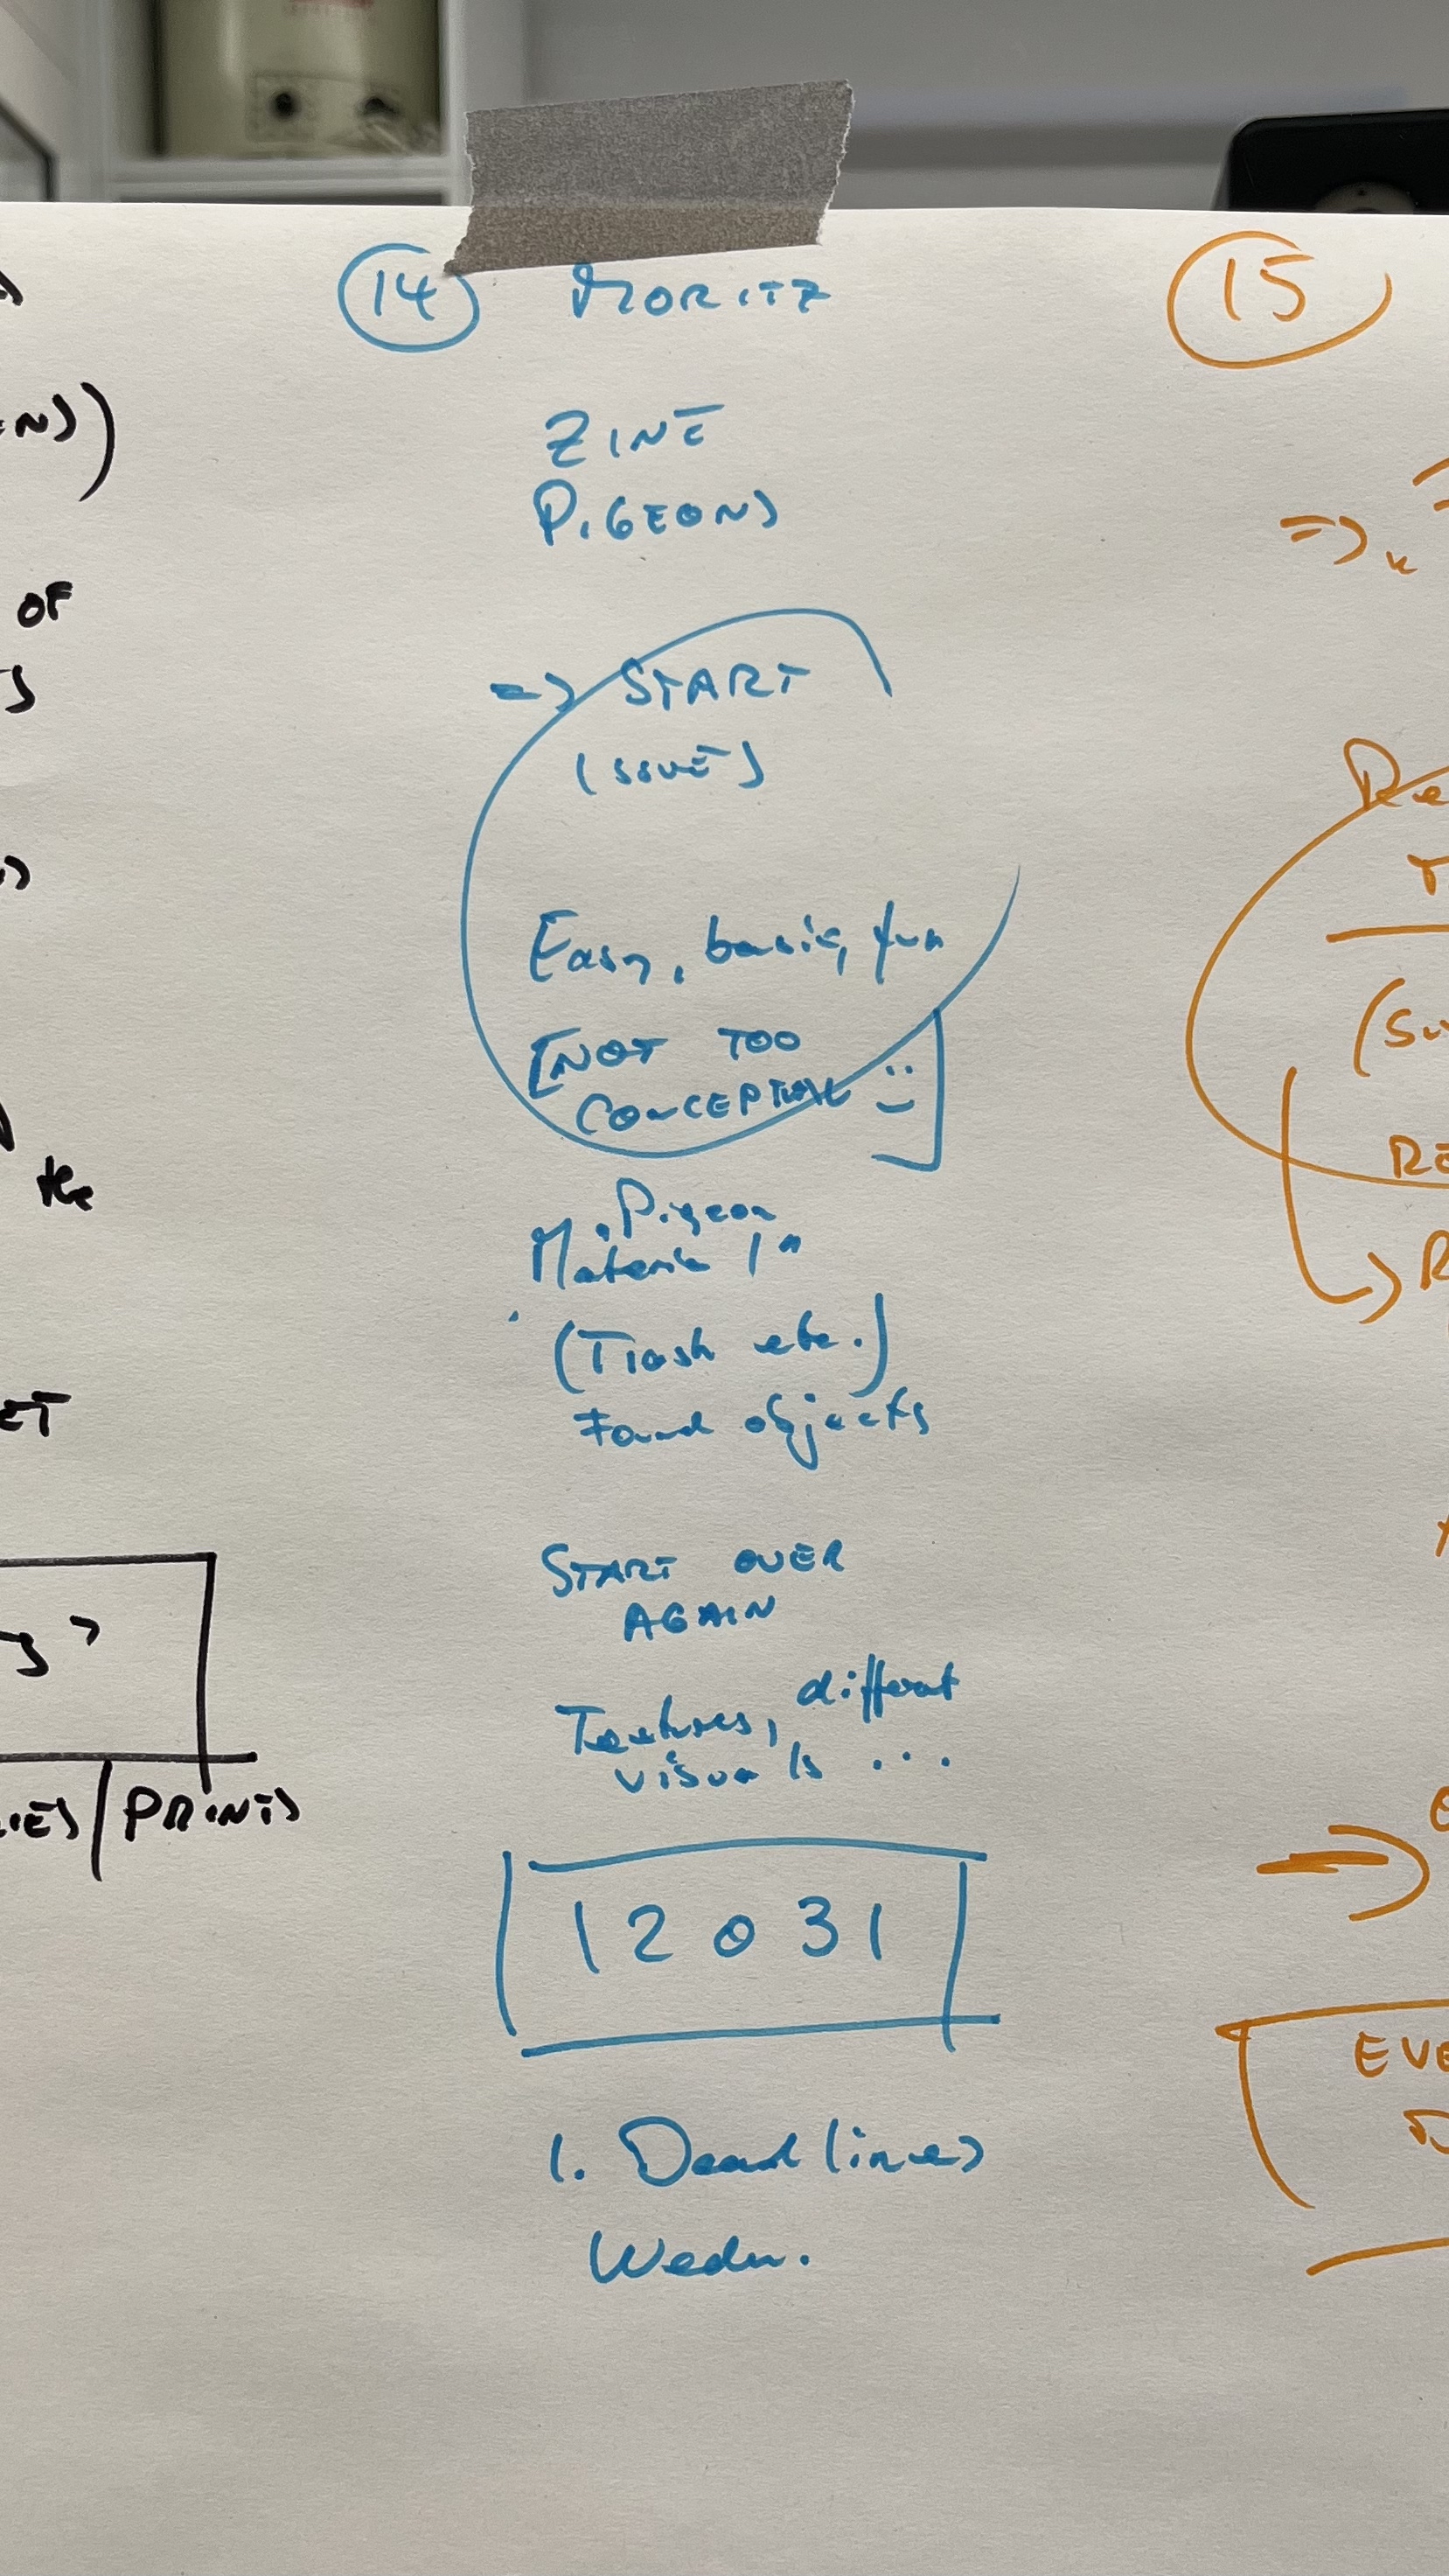 OF
the
ET
PRINTS
14 MORITZ
ZINE
PIGEONS
=> START
(ISSUE)
Easy, basic, fun
[NOT TOO
CONCEPTUAL :)]
"Pigeon
Material"
(Trash etc.)
Found objects
START OVER
AGAIN
Textures, different
visuals ...
12031
1. Deadlines
Wedn.
15
=>
Re
(Su
RE
R
EVE